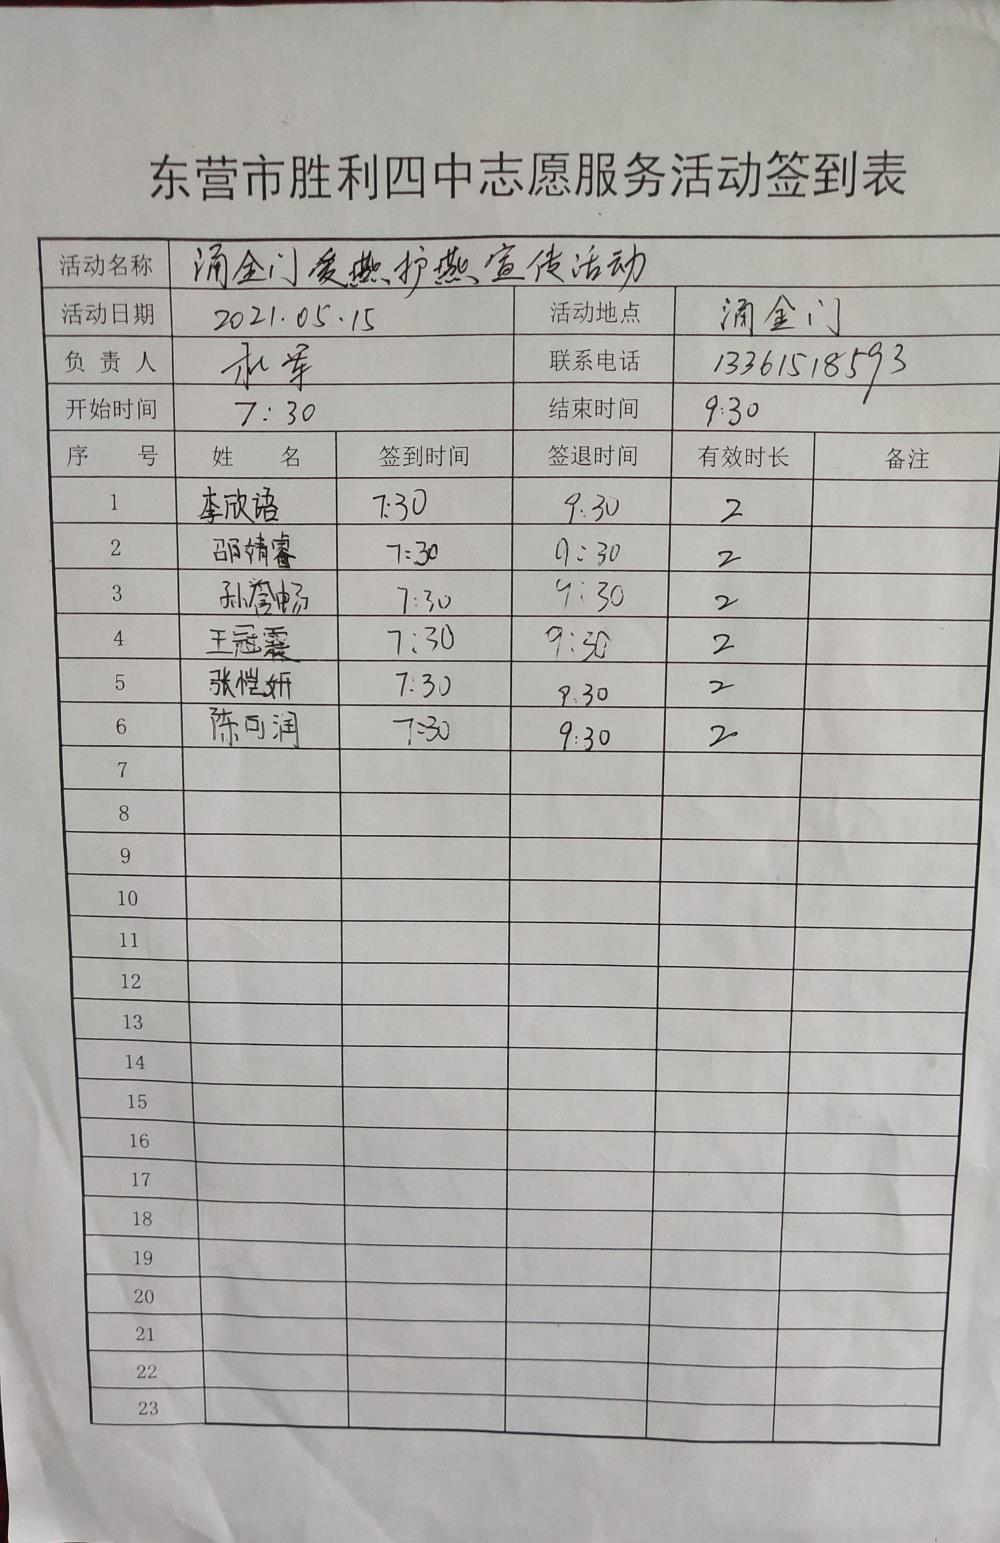 东营市胜利四中志愿服务活动签到表
活动名称 涌金门爱燕护燕宣传活动
活动日期 2021.05.15 活动地点 涌金门
负责人 联系电话 13361518593
开始时间 7:30 结束时间 9:30
序号 姓名 签到时间 签退时间 有效时长 备注
1 李欣语 7:30 9:30 2
2 邵婧睿 7:30 9:30 2
3 孙誉畅 7:30 9:30 2
4 王冠震 7:30 9:30 2
5 张恺妍 7:30 9.30 2
6 陈可润 7:30 9:30 2
7
8
9
10
11
12
13
14
15
16
17
18
19
20
21
22
23